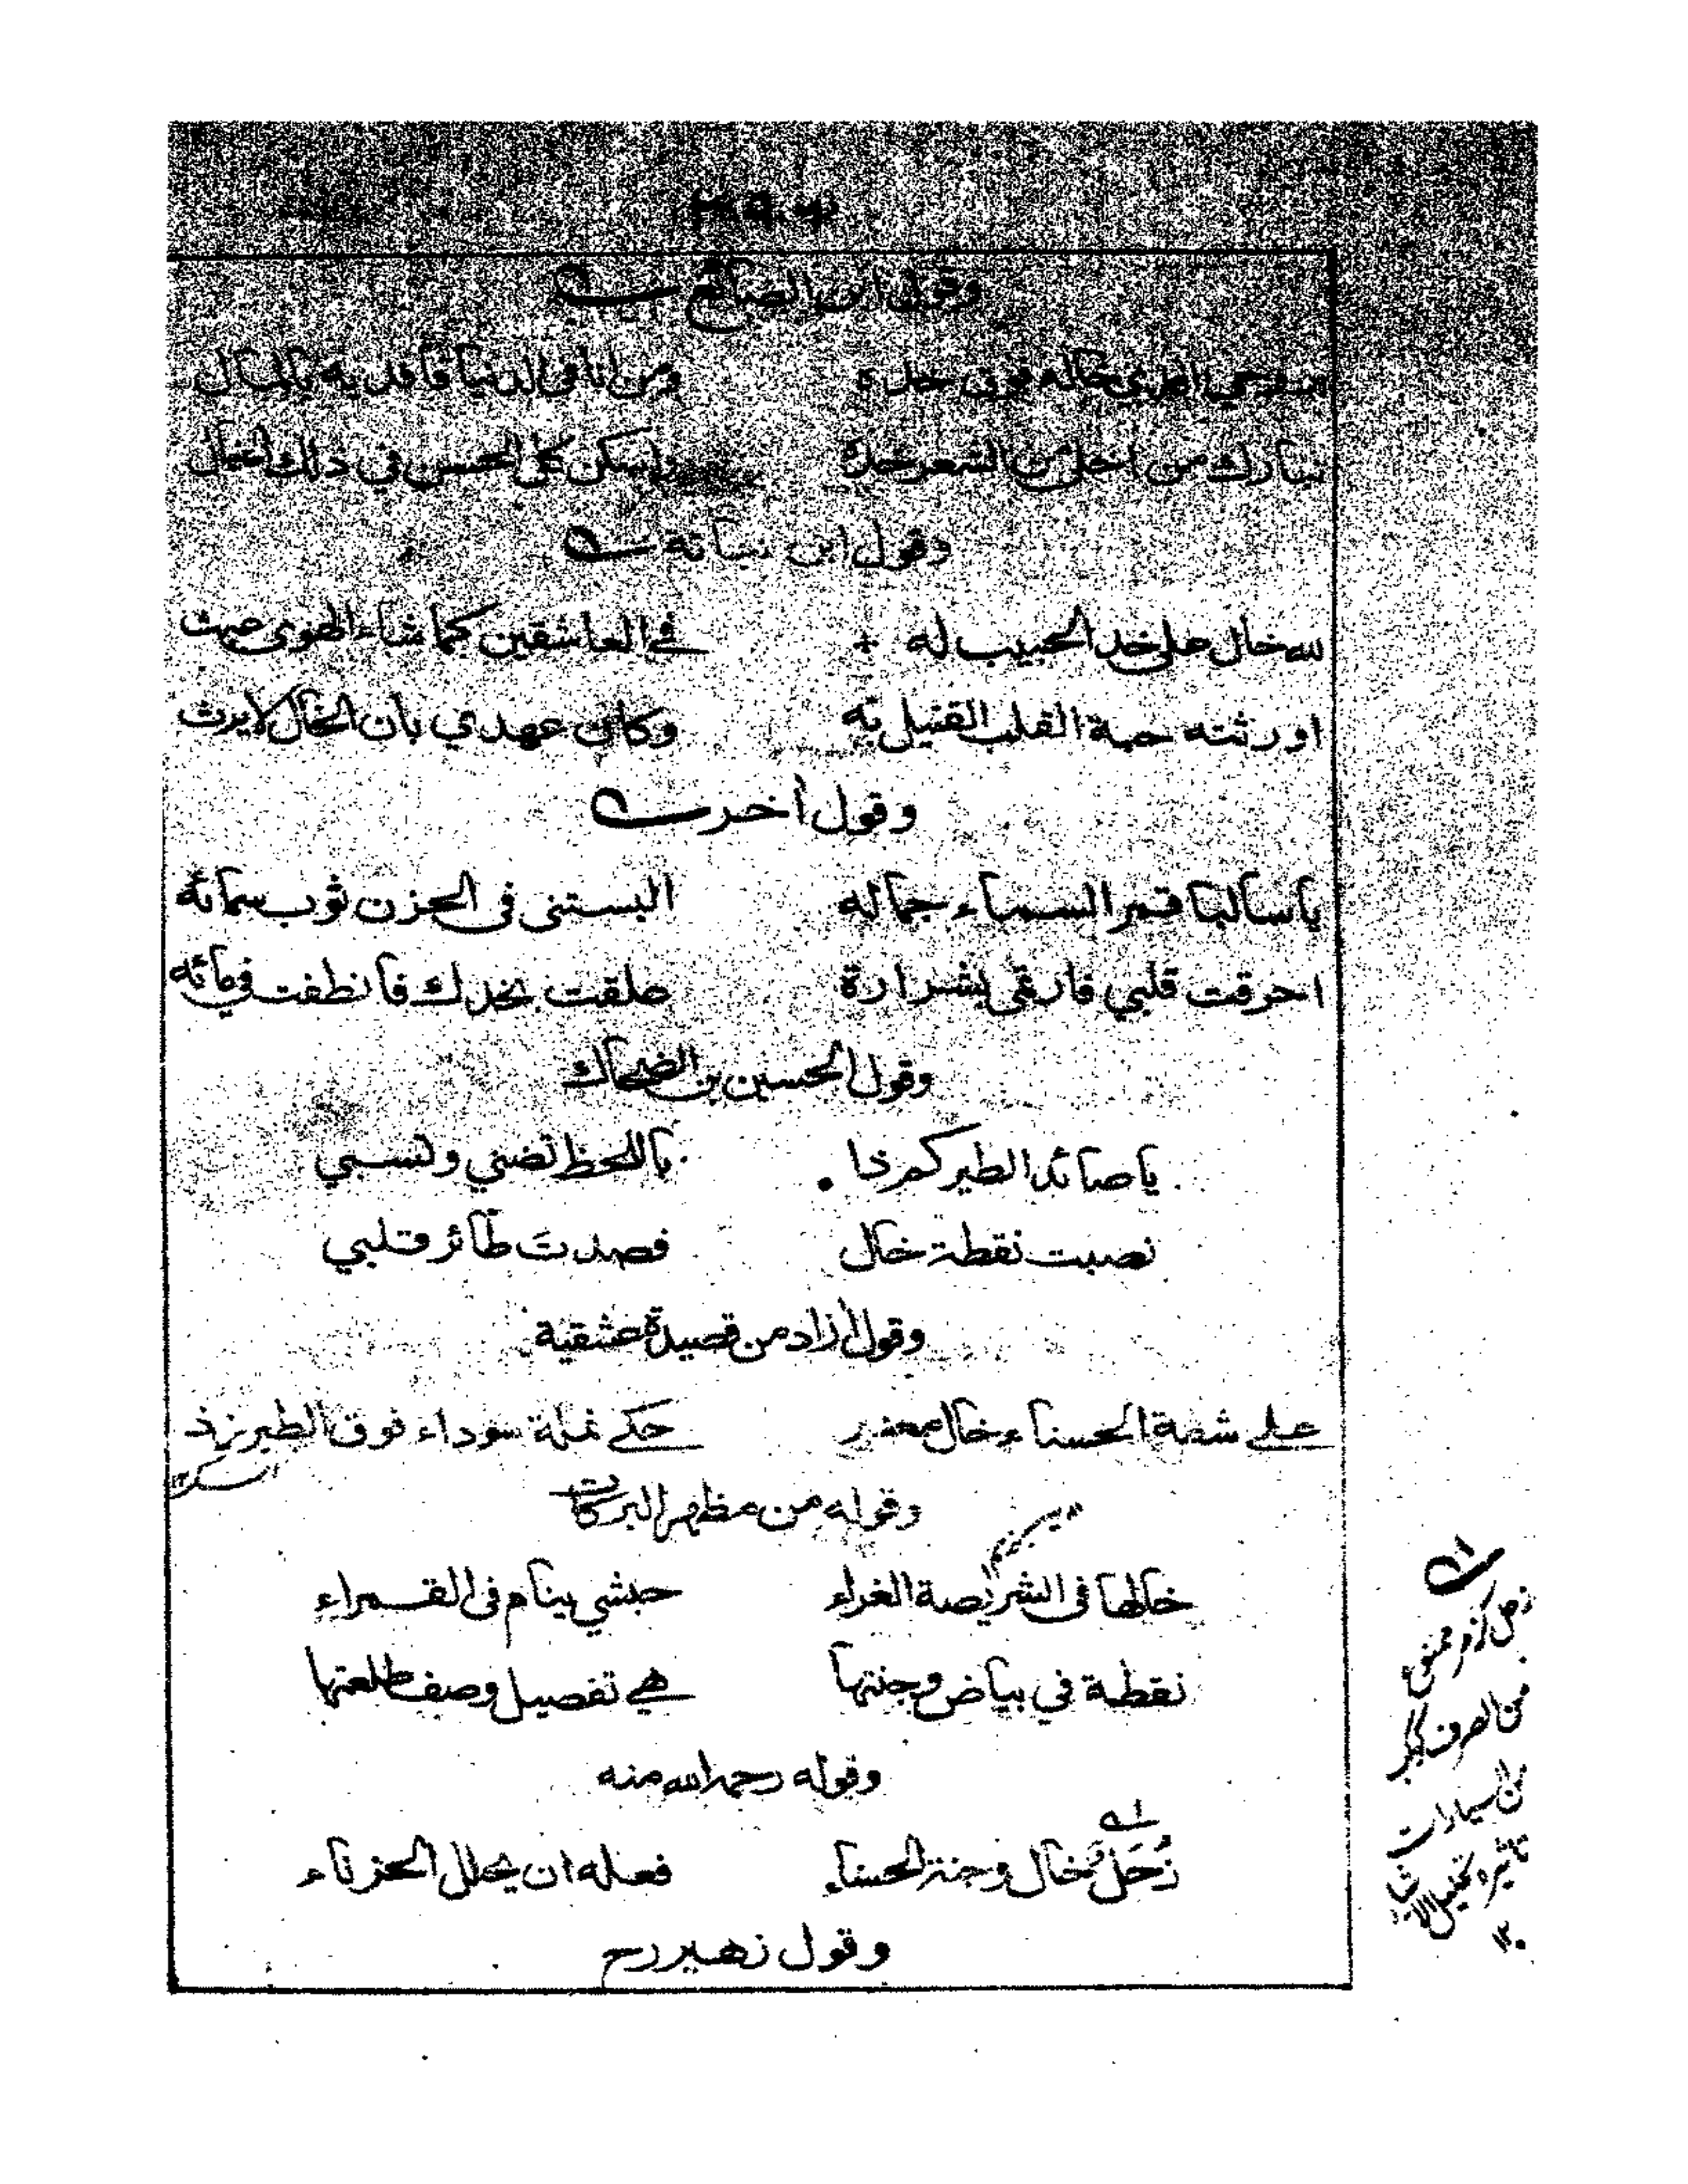 وقول ابن الصائغ
بروحي افدي خاله فوق خده ومن انا في الدنيا فأفديه بالمال
تبارك من اخلى من الشعر خده واسكن كل الحسن في ذلك الخال
وقول ابن نباته
لله خال على خد الحبيب له في العاشقين كما شاء الهوى عبث
اورثته حبة القلب القتيل به وكان عهدي بأن الخال لا يرث
وقول آخر
يا سالبا قمر السماء جماله البستني في الحزن ثوب سمائه
احرقت قلبي فارتمى بشرارة علقت بخدك فانطفت في مائه
وقول الحسين بن الضحاك
يا صائد الطير كم ذا باللحظ تضني وتسبي
نصبت نقطة خال فصدتَ طائر قلبي
وقول آزاد من قصيدة عشقية
على شفة الحسناء خال معنبر حكى نملة سوداء فوق الطبرزذ
وقوله من مظهر البركات
خالها في الشريصة الغراء حبشي ينام في القمراء
نقطة في بياض وجنتها هي تفصيل وصف طلعتها
وقوله رحمه الله منه
زُحَلٌ خال وجنة الحسناء فعله ان يحلل الحفرناء
وقول زهير رح
من السيارات